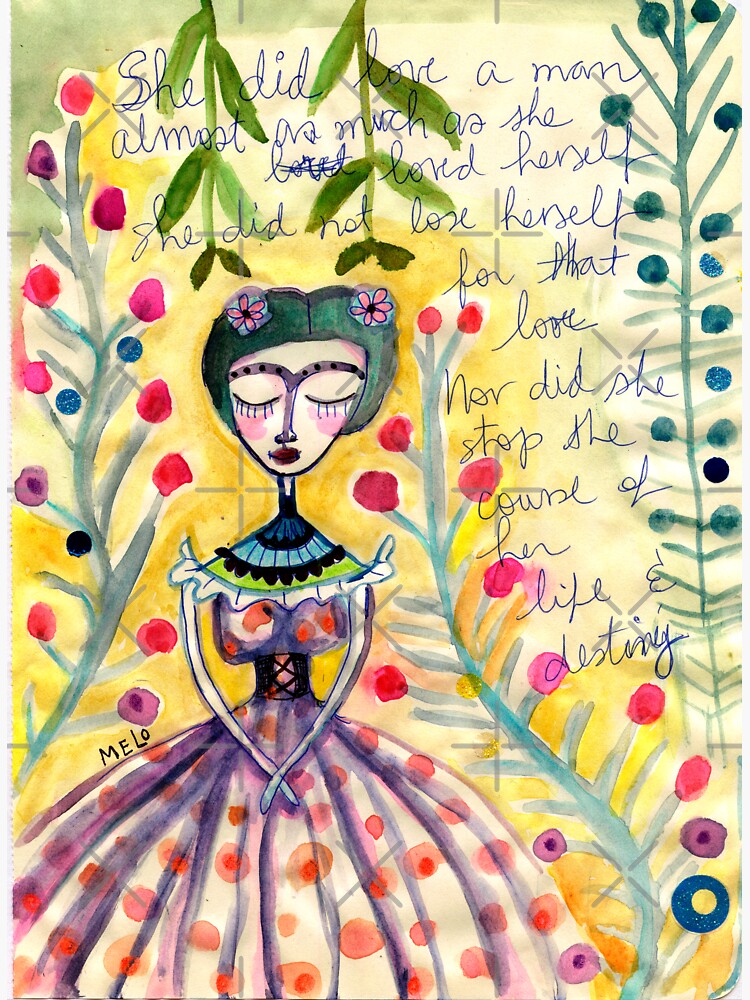 She did love a man
almost as much as she
loved loved herself
she did not lose herself
for that
love
Nor did she
stop the
course of
her
life &
destiny
MELO